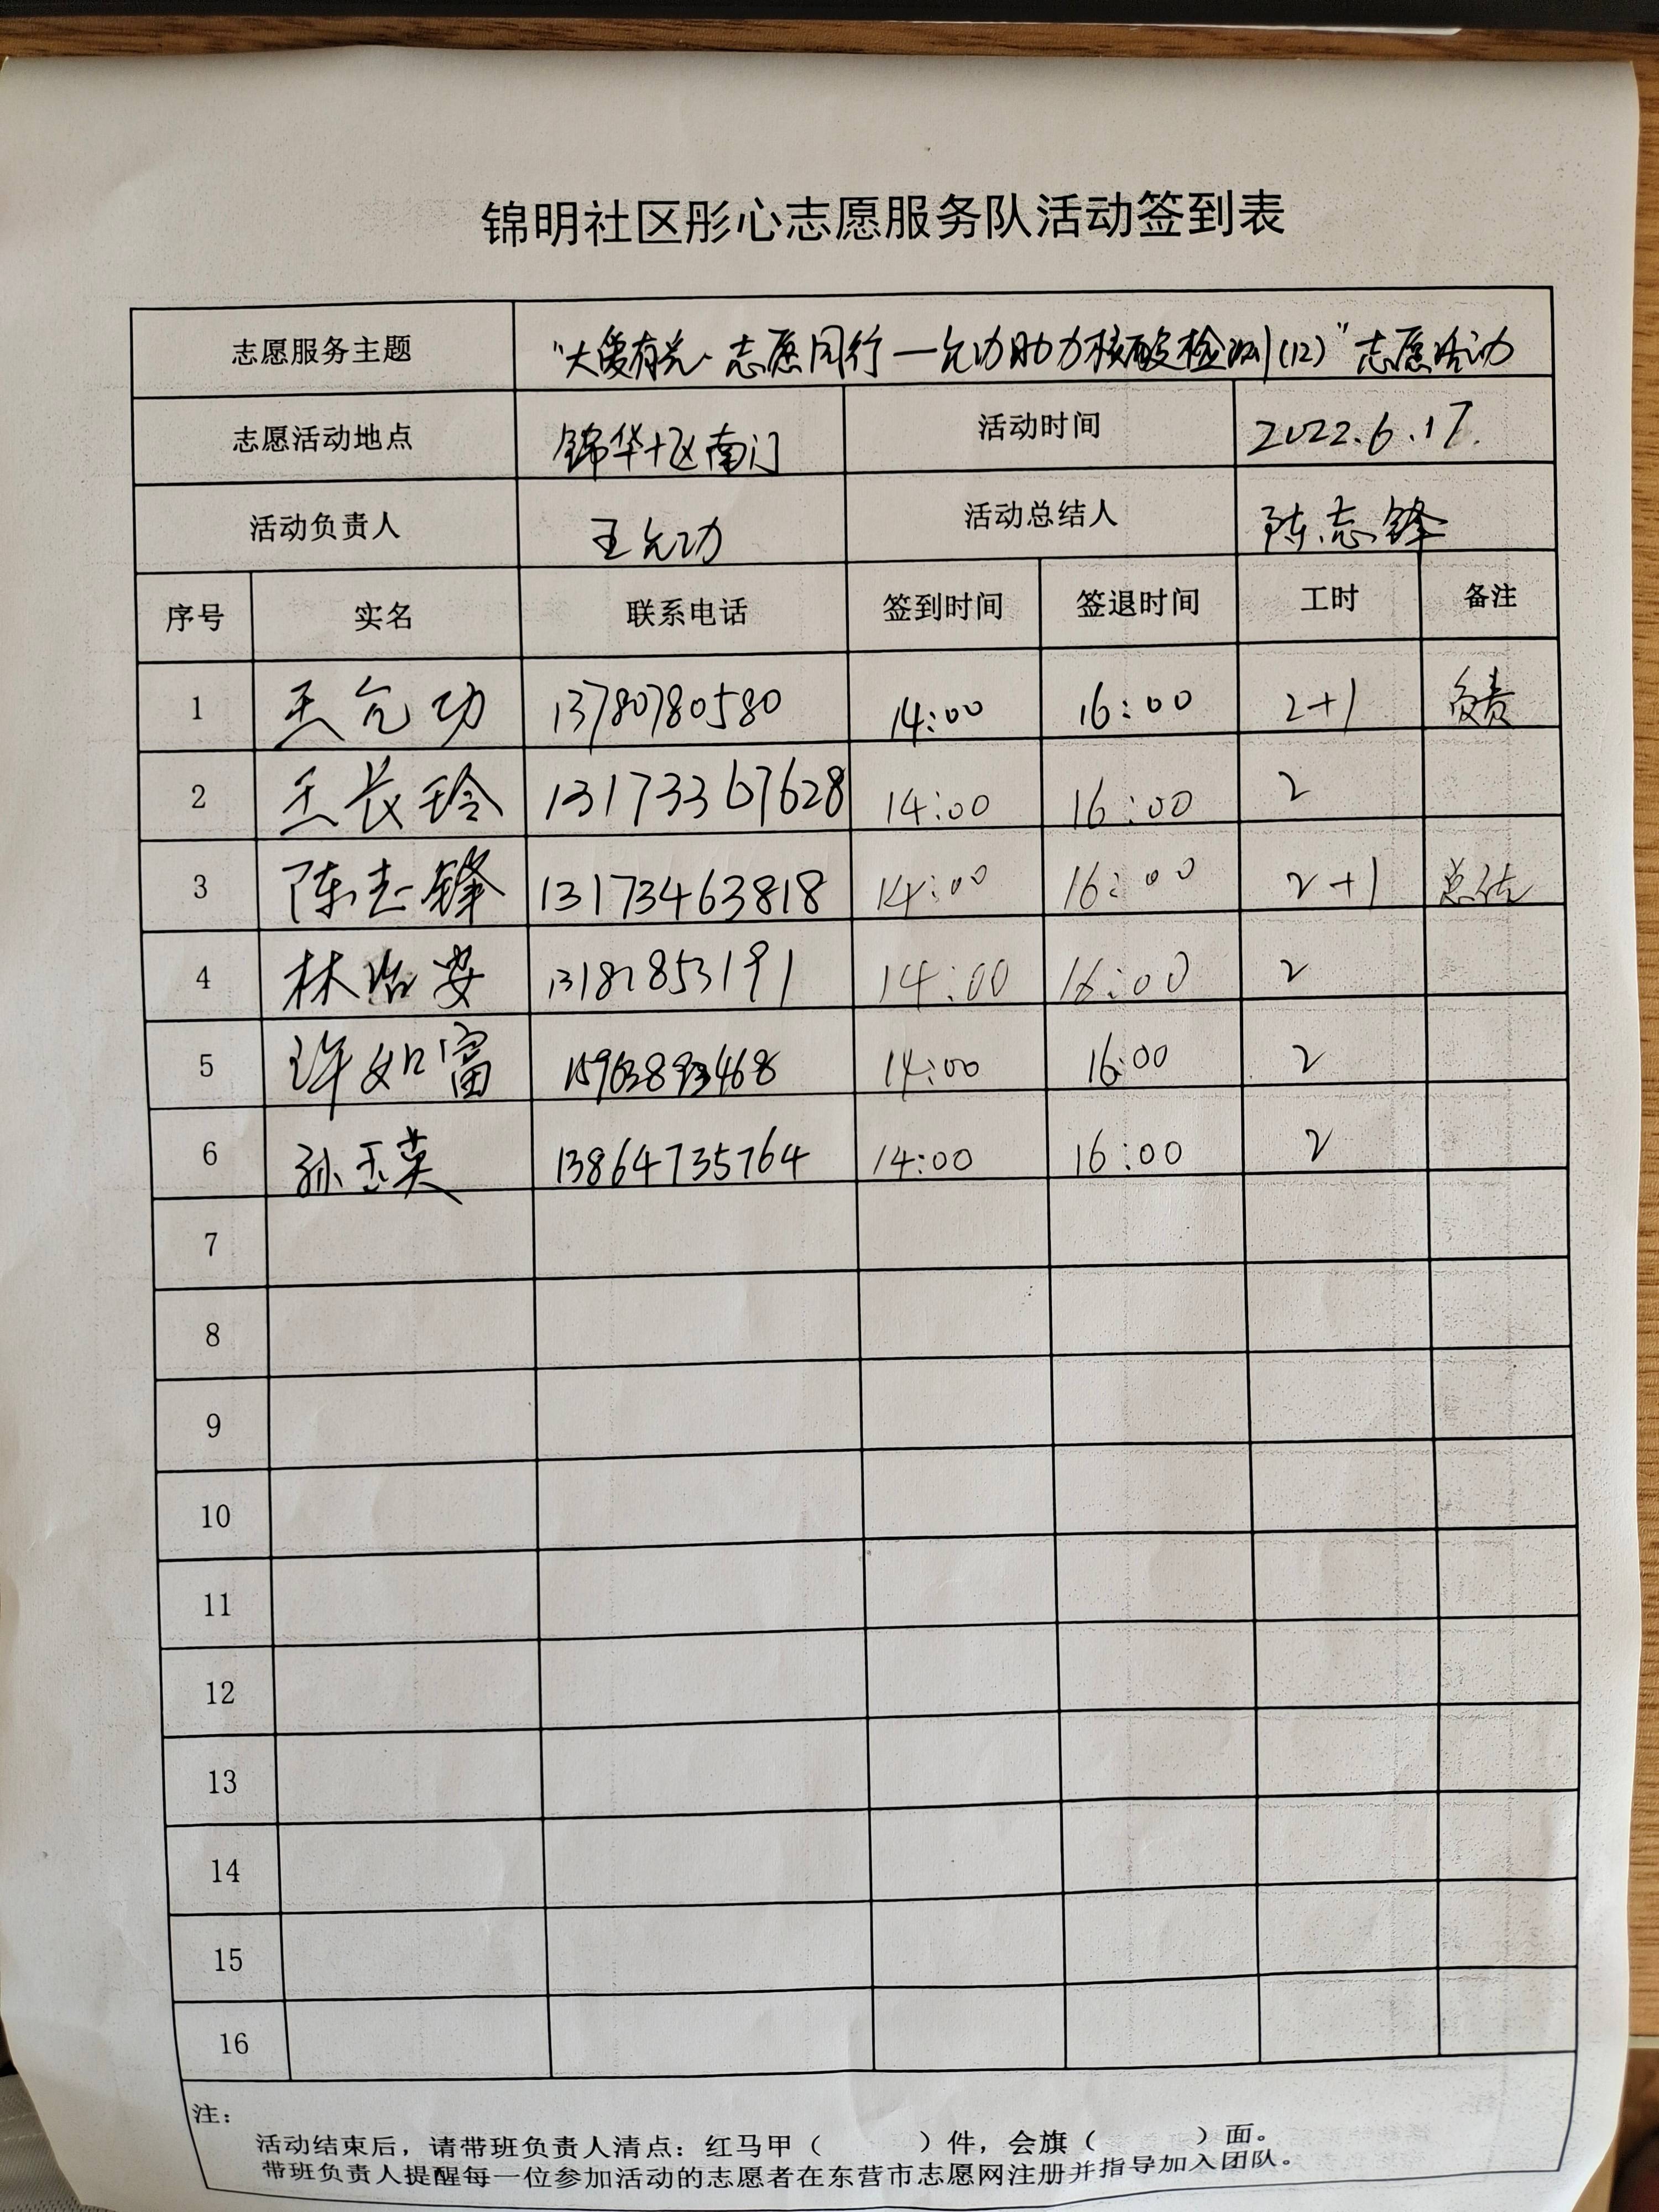 锦明社区彤心志愿服务队活动签到表
志愿服务主题 "大爱有光·志愿同行—允功助力核酸检测(12)"志愿活动
志愿活动地点 锦华十区南门 活动时间 2022.6.17.
活动负责人 王允功 活动总结人 陈志锋
序号 实名 联系电话 签到时间 签退时间 工时 备注
1 王允功 13780780580 14:00 16:00 2+1 负责
2 王长玲 13173367628 14:00 16:00 2
3 陈志锋 13173463818 14:00 16:00 2+1 总结
4 林治安 14:00 16:00 2
5 许如富 14:00 16:00 2
6 孙玉英 13864735764 14:00 16:00 2
7
8
9
10
11
12
13
14
15
16
注：
活动结束后，请带班负责人清点：红马甲（ ）件，会旗（ ）面。
带班负责人提醒每一位参加活动的志愿者在东营市志愿网注册并指导加入团队。